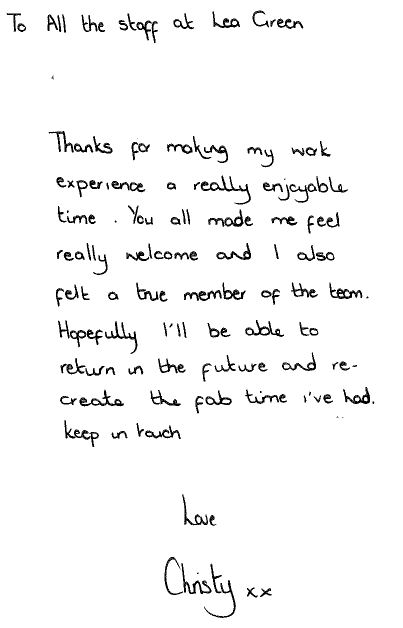 To All the staff at Lea Green
Thanks for making my work
experience a really enjoyable
time. You all made me feel
really welcome and I also
felt a true member of the team.
Hopefully I'll be able to
return in the future and re-
create the fab time i've had.
keep in touch
Love
Christy xx